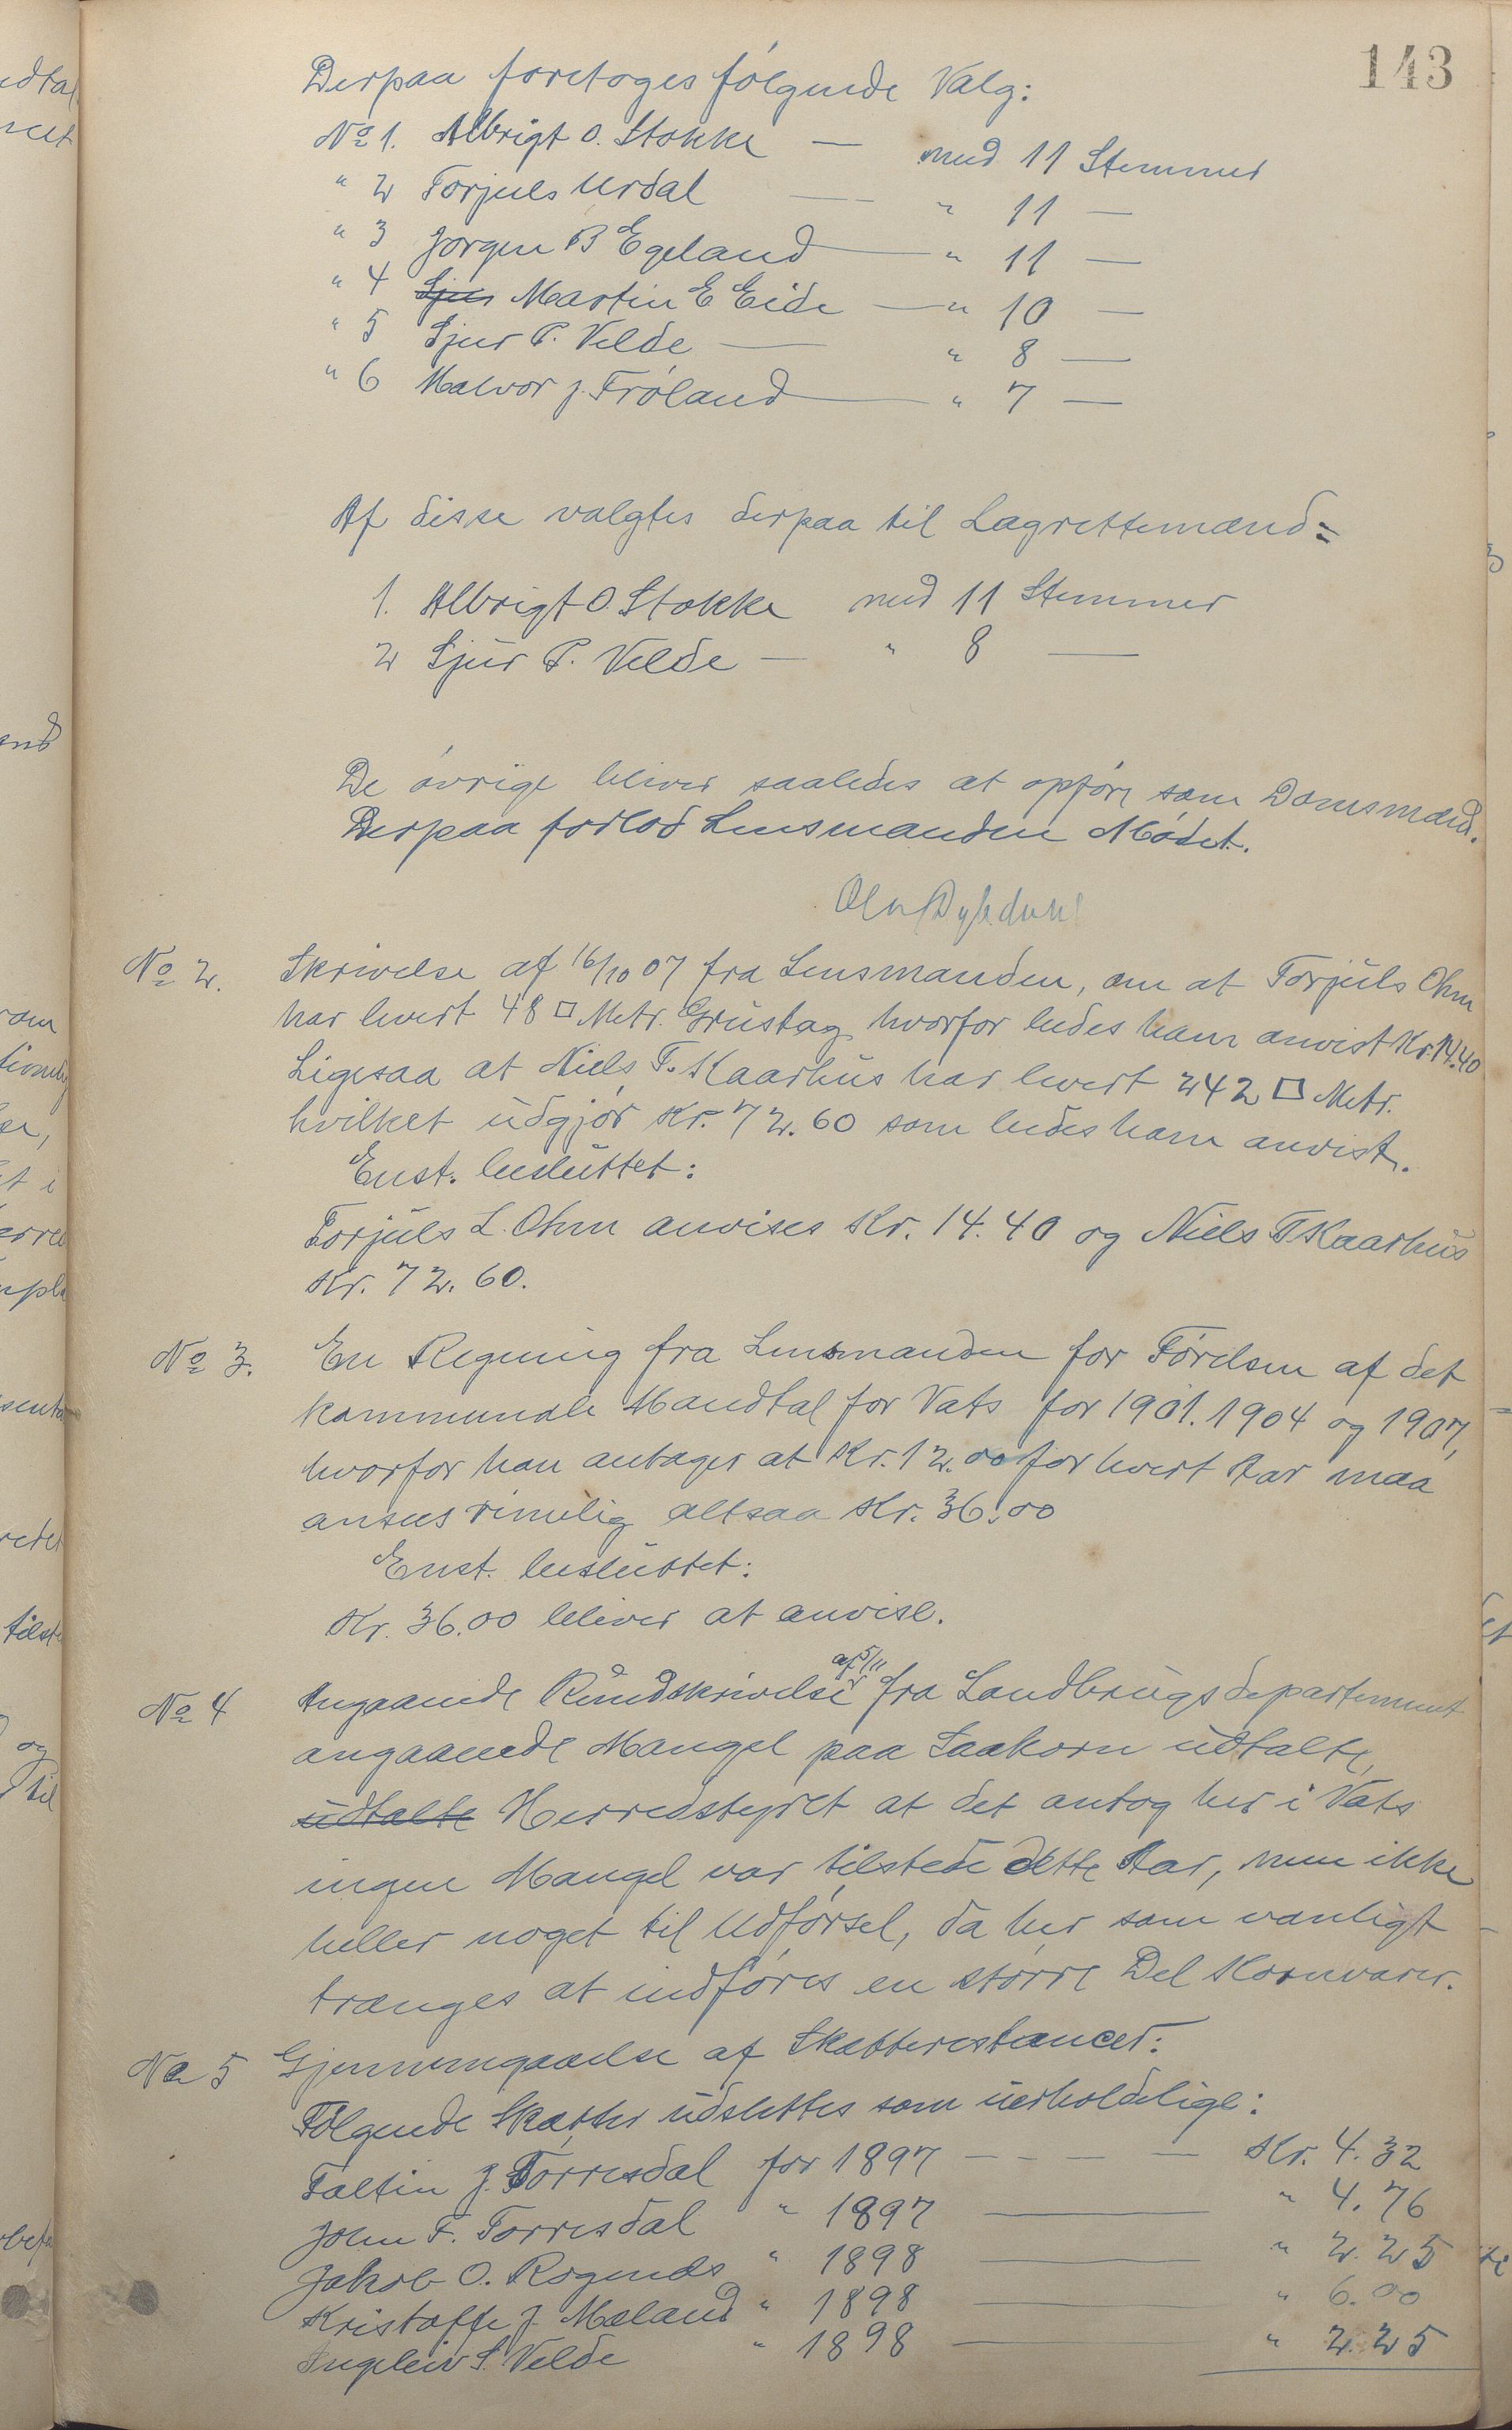 143
Derpaa foretoges følgende Valg:
No 1. Albrigt O. Stokke — med 11 Stemmer
" 2 Torjuls Urdal — " 11 —
" 3 Jørgen B Egeland — " 11 —
" 4 Sjur Martin E Eide — " 10 —
" 5 Sjur P. Velde — " 8 —
" 6 Halvor J. Frøland — " 7 —
Af disse valgtes derpaa til Lagrettemænd:
1. Albrigt O. Stokke med 11 Stemmer
2 Sjur P. Velde — " 8 —
De øvrige bliver saaledes at opføre som Domsmænd.
Derpaa forlod Lensmanden Mødet.
No 2. Skrivelse af 16/10 07 fra Lensmanden, om at Torjuls Ohm
har levert 48 □ Metr. Grustag hvorfor bedes ham anvist Kr. 14.40
Ligesaa at Niels T. Kaarhus har levert 242 □ Metr.
hvilket udgjør Kr. 72.60 som bedes ham anvist.
Enst. besluttet:
Torjuls L. Ohm anvises Kr. 14.40 og Niels T Kaarhus
Kr. 72.60.
No 3. En Regning fra Lensmanden for Førelsen af det
kommunale Mandtal for Vats for 1901. 1904 og 1907,
hvorfor han antager at Kr. 12.00 for hvert Aar maa
ansees rimelig altsaa Kr. 36.00
Enst. besluttet:
Kr. 36.00 bliver at anvise.
No 4 Angaaende Rundskrivelse af 5/11 fra Landbrugsdepartement
angaaende Mangel paa Saakorn udtalte,
udtalte Herredstyret at det antog her i Vats
ingen Mangel var tilstede dette Aar, men ikke
heller noget til Udførsel, da her som vanligt
trænges at indføres en større Del Kornvarer.
No 5 Gjennemgaaelse af Skatterestancer:
Følgende Skatter udslettes som uerholdelige:
Taltin J. Tørresdal for 1897 — — — — Kr. 4.32
John F. Tørresdal " 1897 — " 4.76
Jakob O. Rogends " 1898 — " 2.25
Kristoffe J. Mæland " 1898 — " 6.00
Ingeleiv S. Velde " 1898 — " 2.25